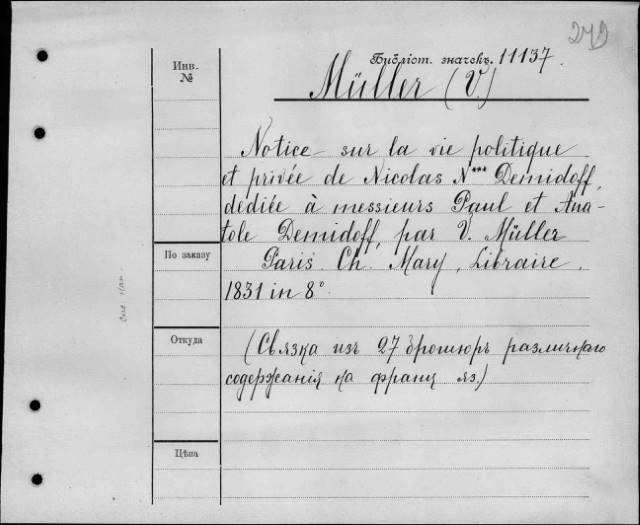 279
Инв.
№
Библіот. значекъ. 11137.
Müller (V.)
Notice sur la vie politique
et privée de Nicolas N*** Demidoff,
dédiée à messieurs Paul et Ana-
tole Demidoff, par V. Müller
По заказу
Paris. Ch. Mary, Libraire,
1831 in 8°
Откуда
(Связка изъ 27 брошюръ различнаго
содержанія на франц яз.)
Цѣна